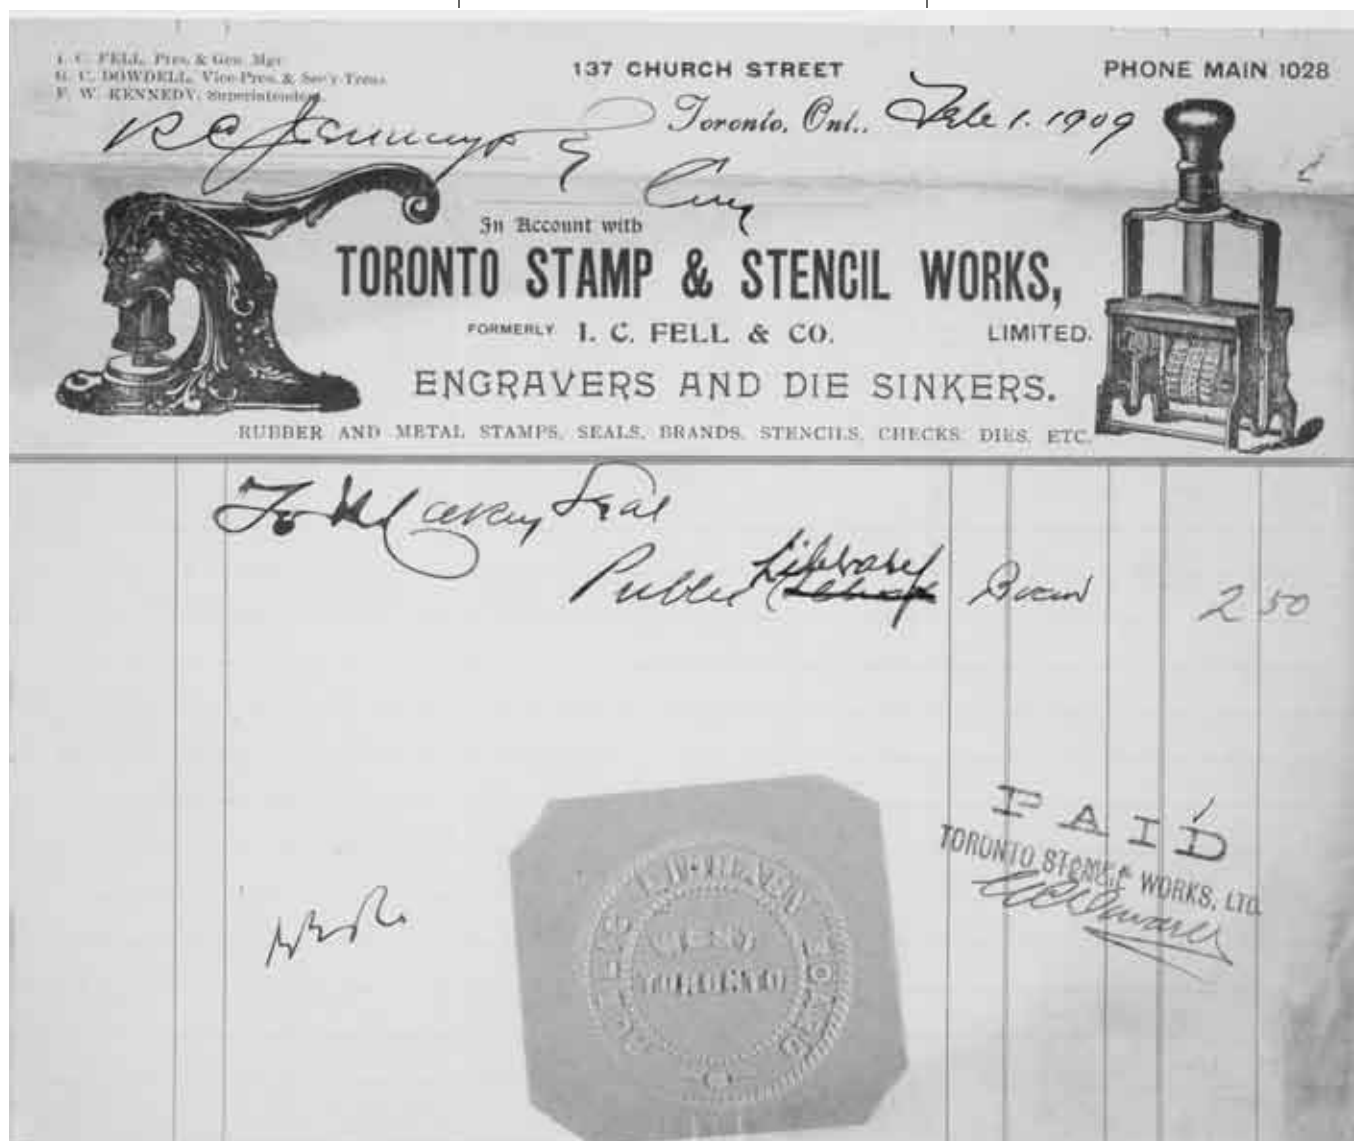 I. C. FELL, Pres. & Gen. Mgr
G. C. DOWDELL, Vice-Pres. & Sec'y-Treas.
F. W. KENNEDY, Superintendent.
137 CHURCH STREET
PHONE MAIN 1028
Toronto, Ont., Feb 1. 1909
R C Jennings
In Account with
TORONTO STAMP & STENCIL WORKS,
FORMERLY I. C. FELL & CO. LIMITED.
ENGRAVERS AND DIE SINKERS.
RUBBER AND METAL STAMPS, SEALS, BRANDS, STENCILS, CHECKS, DIES, ETC.
To Seal
Public Library Board 2 50
PAID
TORONTO STAMP & WORKS, LTD.
PUBLIC LIBRARY BOARD
WEST
TORONTO